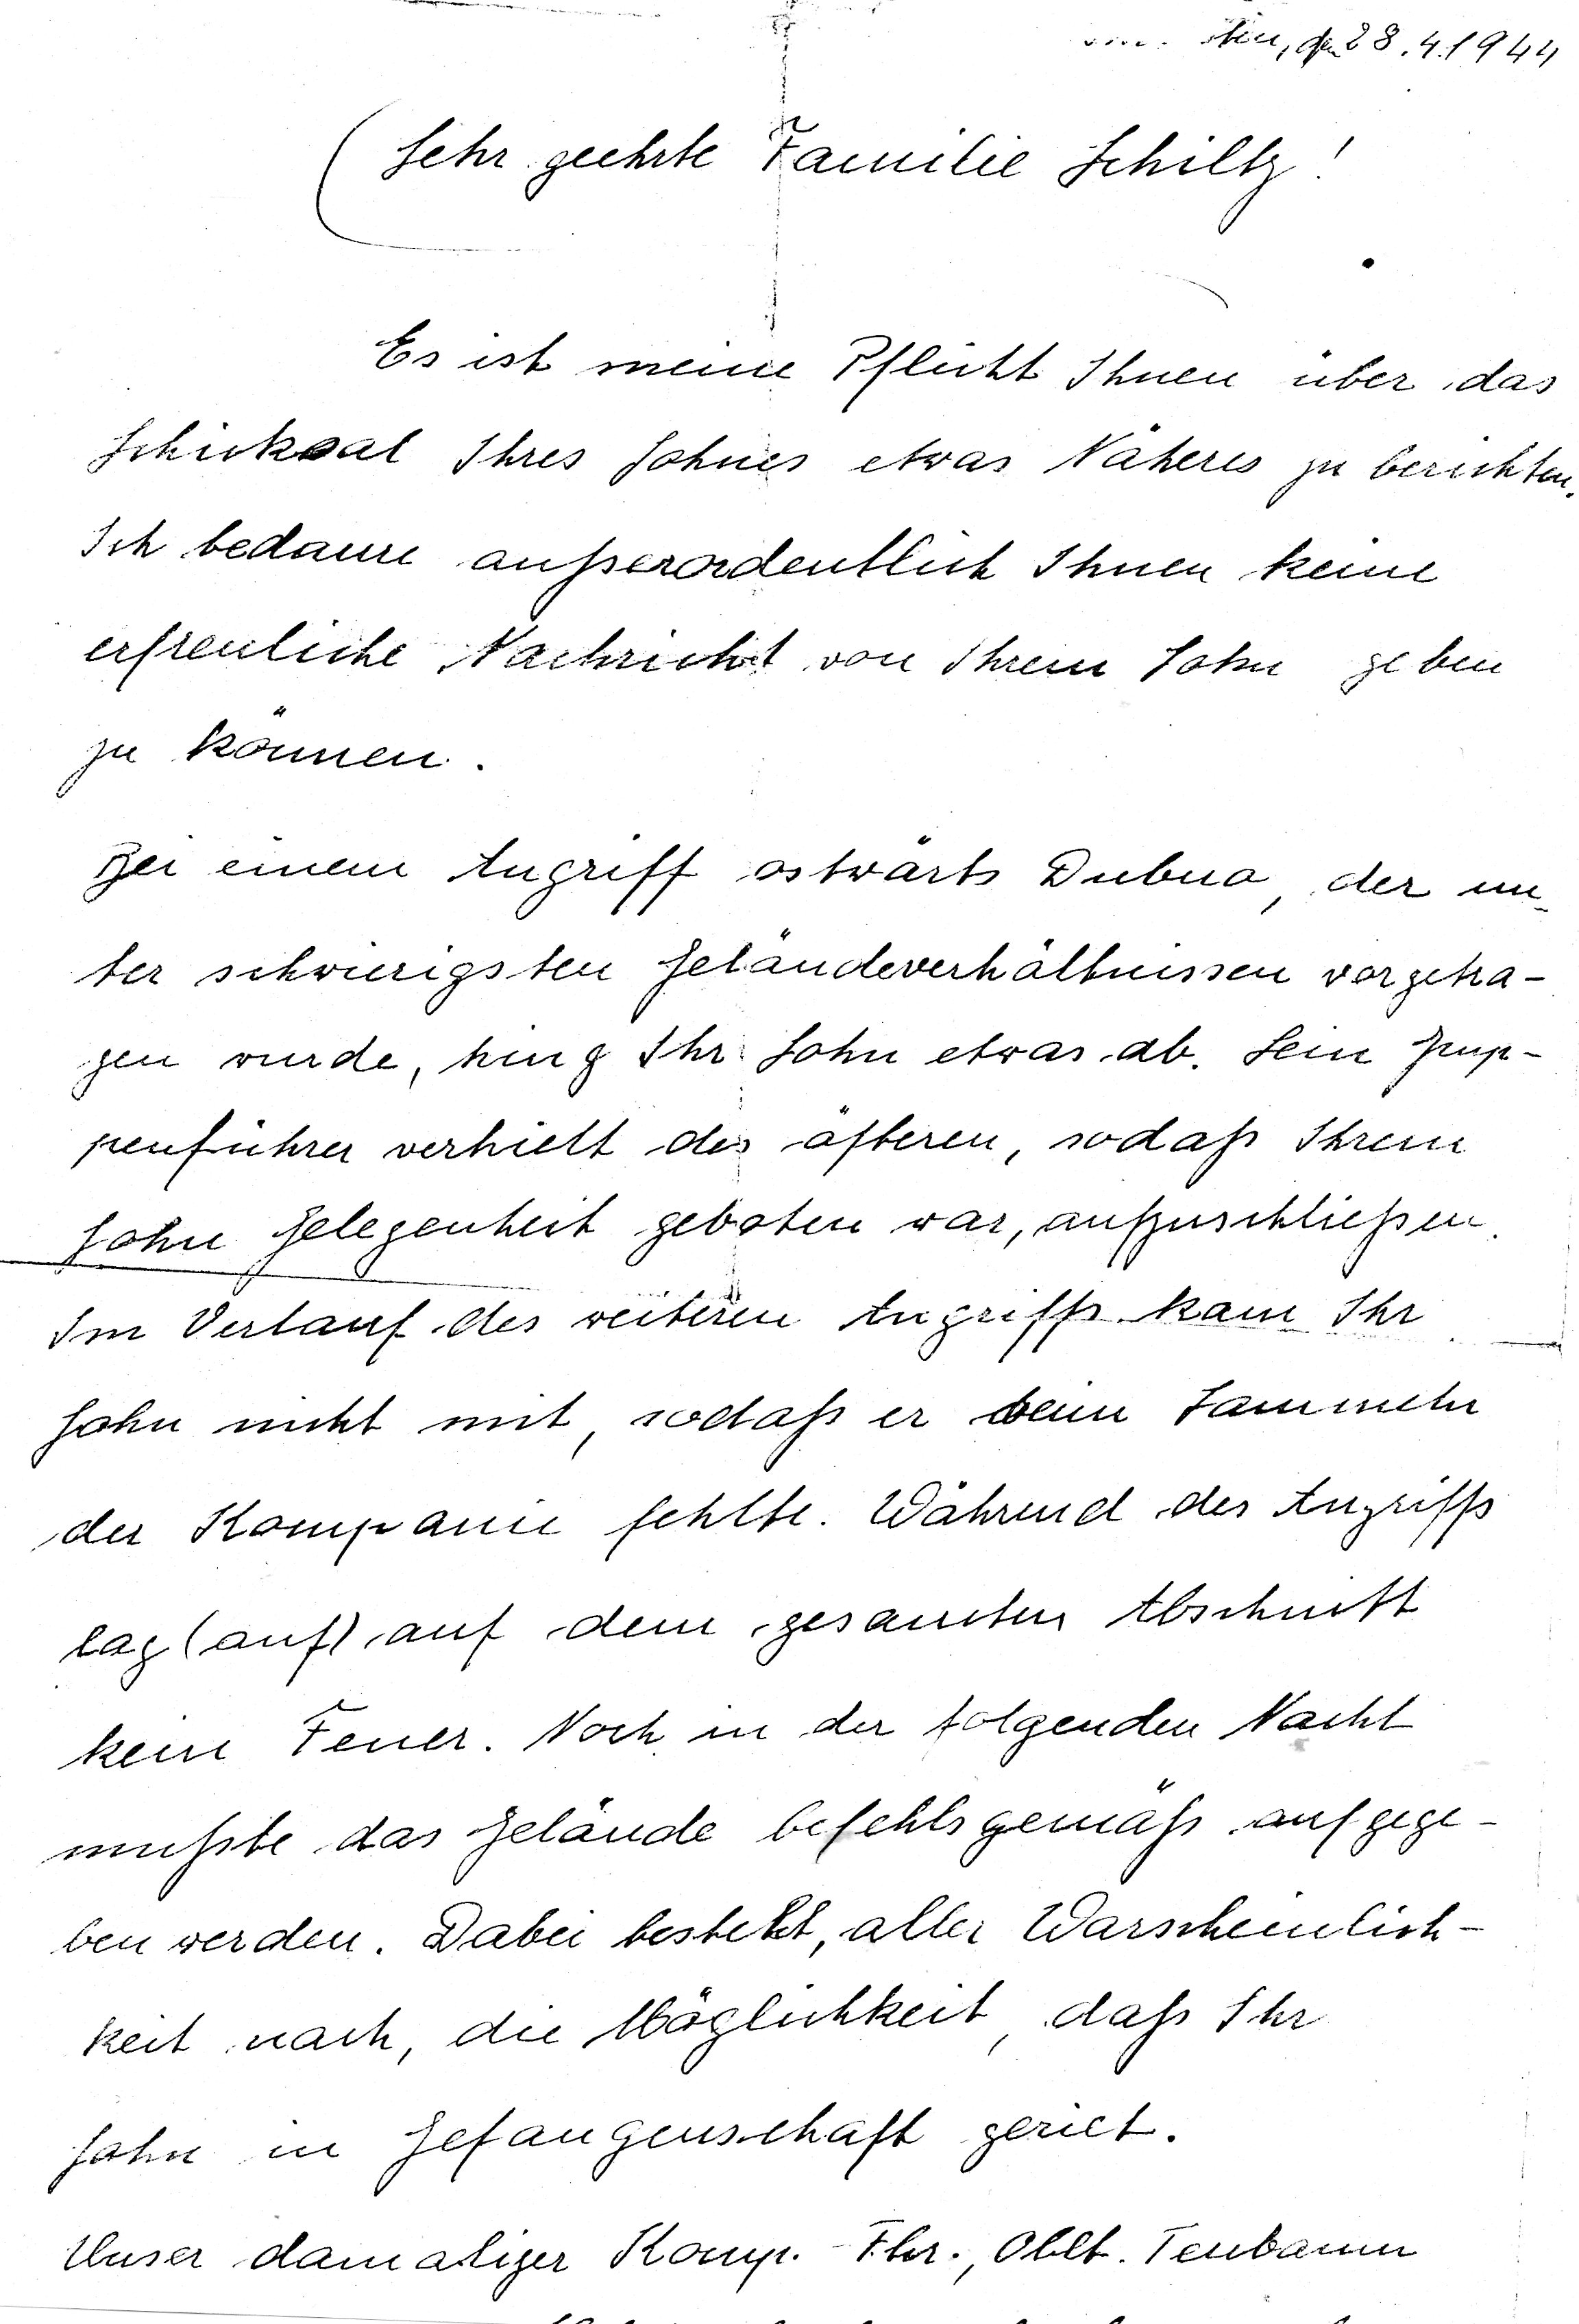 den 28.4.1944
Sehr geehrte Familie Schiltz!
Es ist meine Pflicht Ihnen über das
Schicksal Ihres Sohnes etwas Näheres zu berichten.
Ich bedaure außerordentlich Ihnen keine
erfreuliche Nachricht von Ihrem Sohn geben
zu können.
Bei einem Angriff ostwärts Dubno, der un-
ter schwierigsten Geländeverhältnissen vorgetra-
gen wurde, hing Ihr Sohn etwas ab. Sein Grup-
penführer verhielt des öfteren, sodaß Ihrem
Sohn Gelegenheit geboten war, aufzuschließen.
Im Verlauf des weiteren Angriffs kam Ihr
Sohn nicht mit, sodaß er beim Sammeln
der Kompanie fehlte. Während des Angriffs
lag (auf) auf dem gesamten Abschnitt
kein Feuer. Noch in der folgenden Nacht
mußte das Gelände befehlsgemäß aufgege-
ben werden. Dabei besteht, aller Warscheinlich-
keit nach, die Möglichkeit, daß Ihr
Sohn in Gefangenschaft geriet.
Unser damaliger Komp.-Fhr., Oblt. Tenbaum